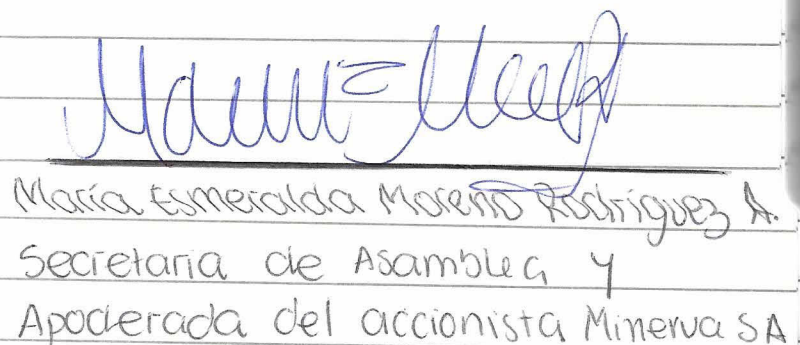 María Esmeralda Moreno Rodríguez A.
Secretaria de Asamblea y
Apoderada del accionista Minerva SA